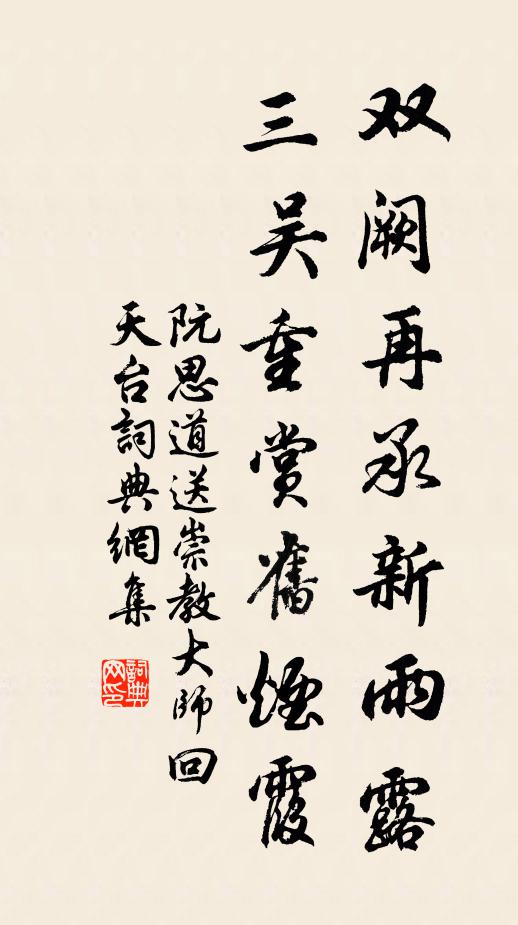 双阙再承新雨露
三吴重赏舊煙霞
阮思道送崇教大师回
天台詞典網集
詞典网印